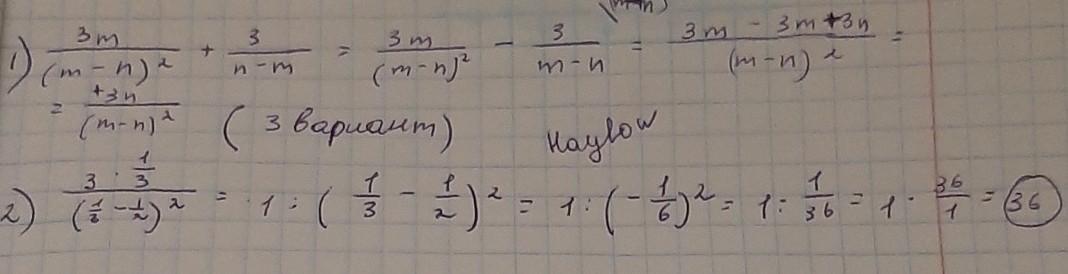 1) 3m/(m-n)² + 3/(n-m) = 3m/(m-n)² - 3/(m-n) = (3m - 3m+3n)/(m-n)² =
= +3n/(m-n)² (3 вариант) Haylow
2) (3 · 1/3)/(1/2 - 1/2)² = 1 : (1/3 - 1/2)² = 1 : (-1/6)² = 1 : 1/36 = 1 · 36/1 = 36